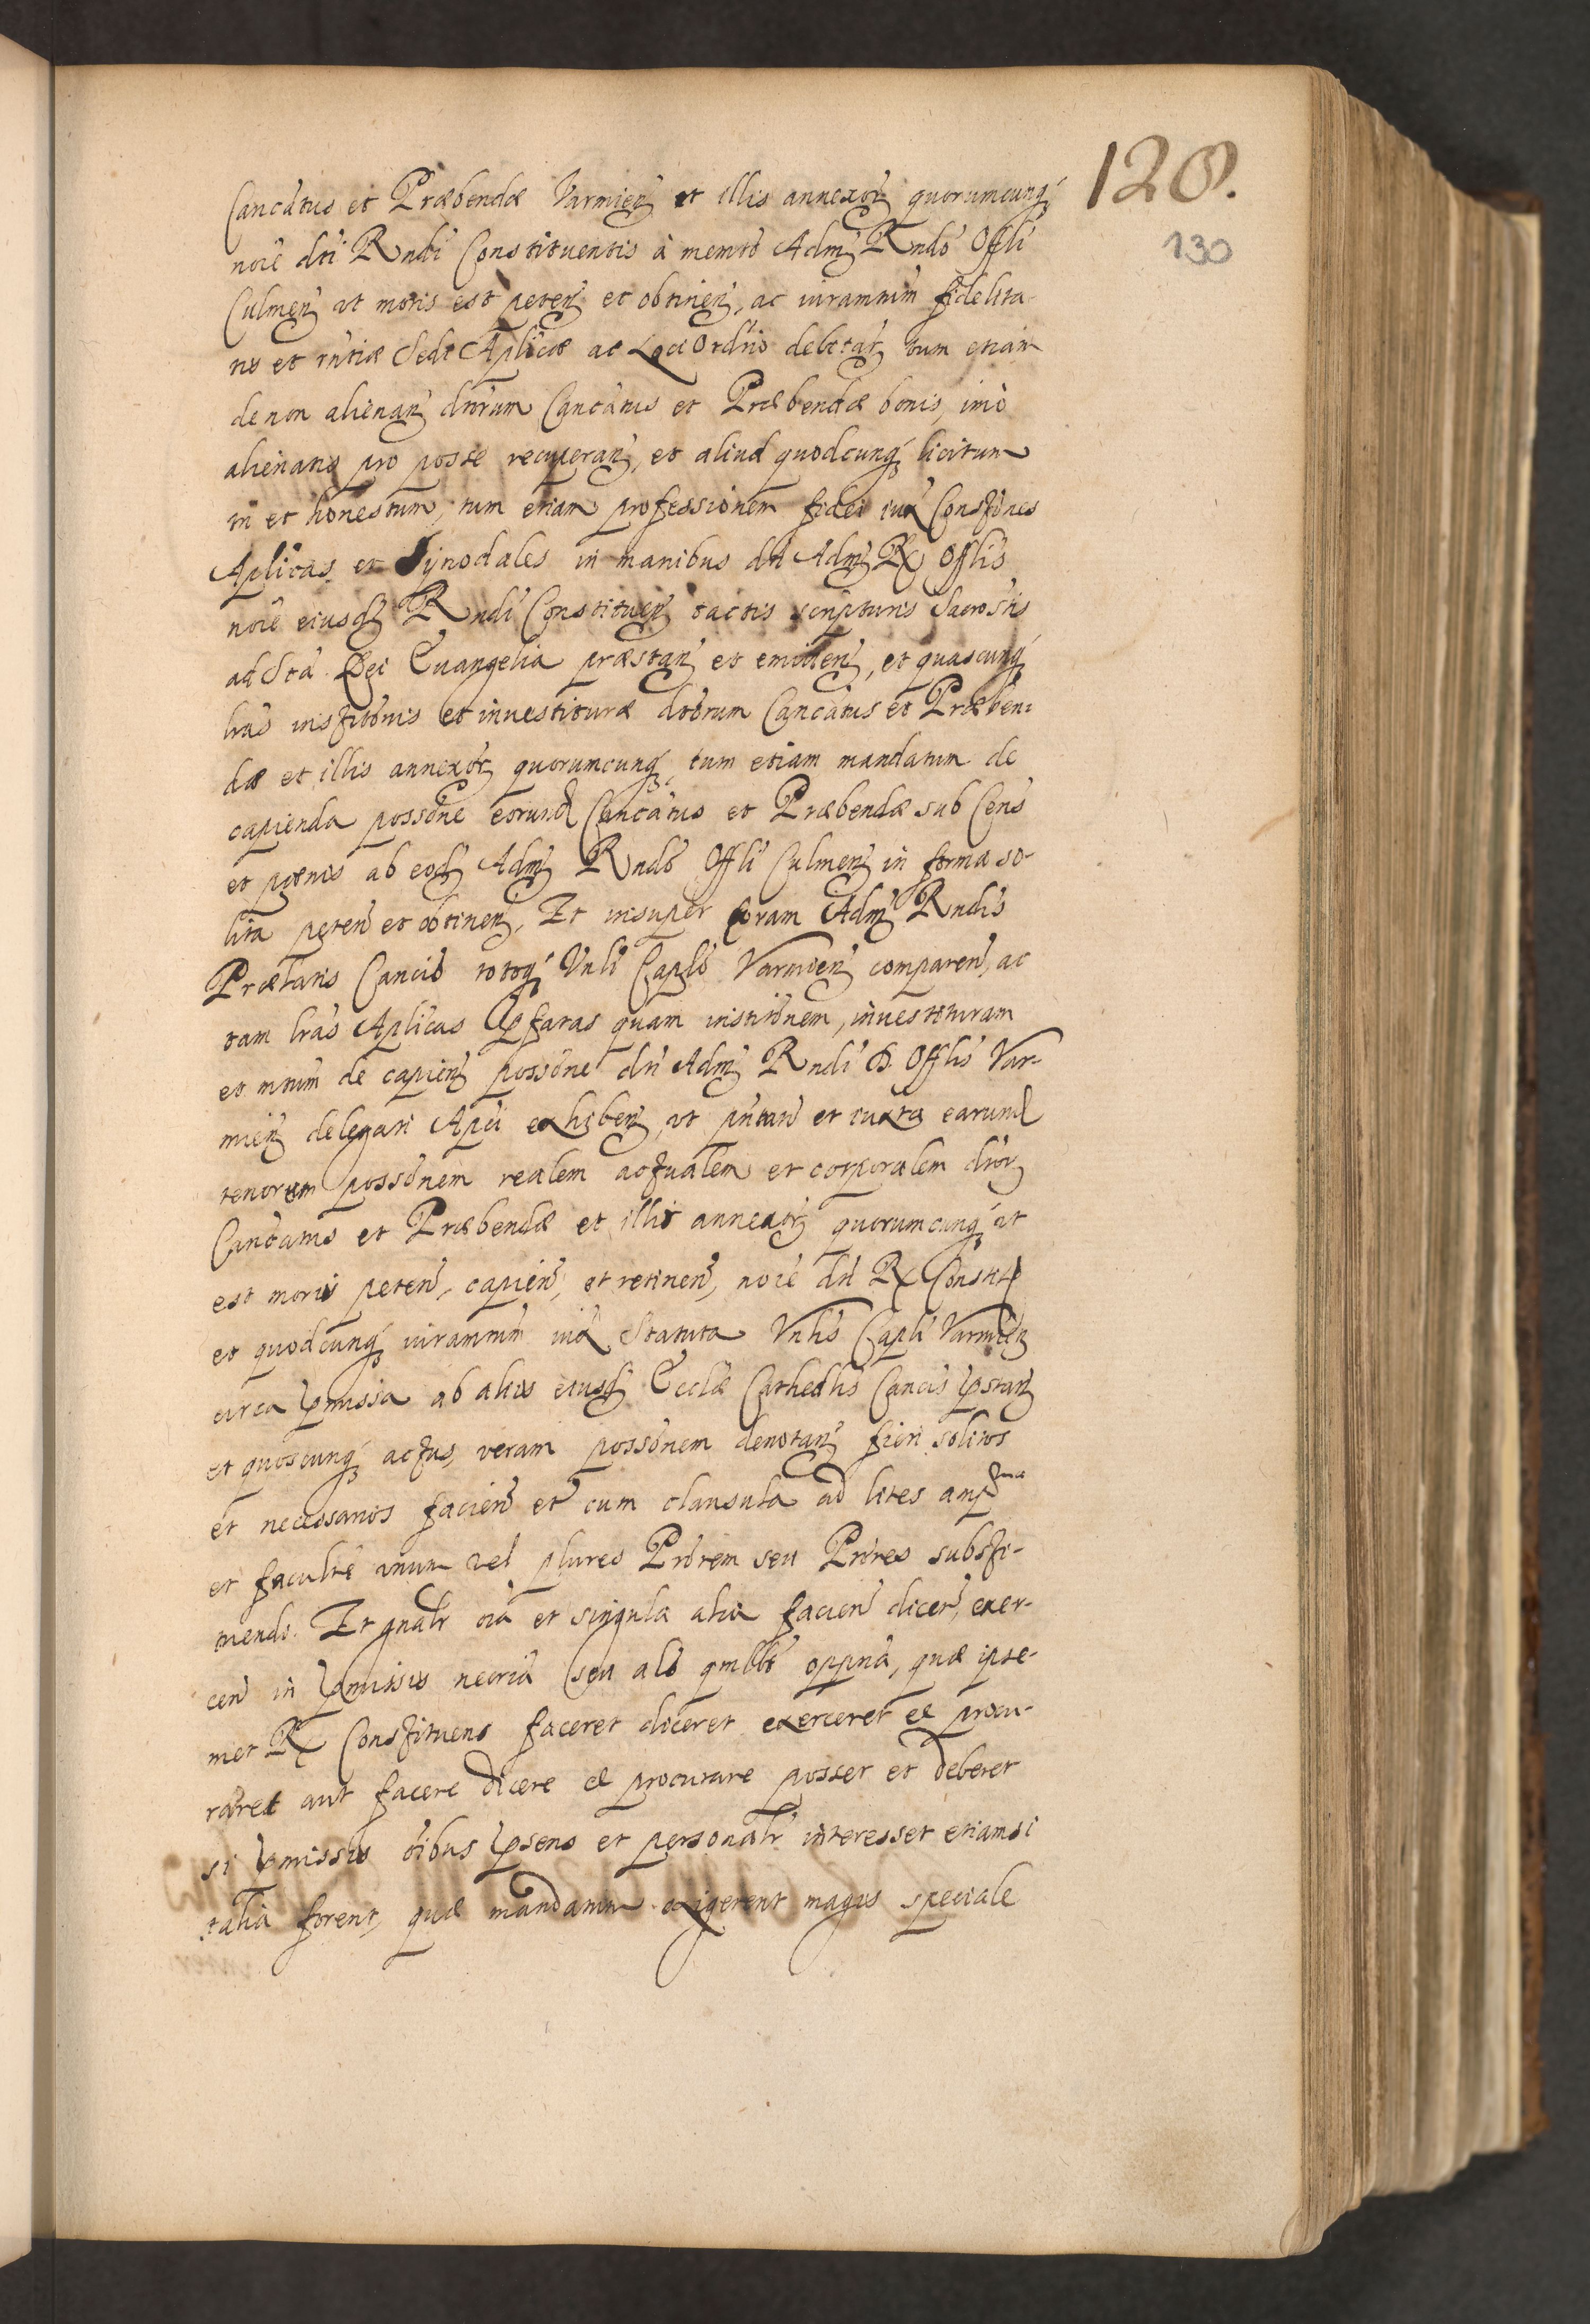 128.
130
Cancatus et Præbendæ Varmień et illis annexor̃ quorumcunq́;
noie dti Rndi Constituentis à memto Adm̃ Rndo Offli
Culmeñ vt moris est peteñ et obtineñ, ac iuramtum fidelita-
tis et rntiæ Sedi Aplicæ ac Loci Ordrio debitar̃ tum etiam
de non alienañ dtorum Cancatus et Præbendæ bonis, imò
alienatis pro posse recuperañ, et aliud quodcunq́; licitum
tn et honestum, tum etiam professionem fidei iux Constones
Aplicas et Synodales in manibus dti Adm̃ R Offlis
noie eiusd̃ Rndi Constitueñ tactis scripturis Sacrostis
ad Sta Dei Euangelia præstañ et emitteñ, et quascunq́;
lras institonis et inuestituræ dtorum Cancatus et Præben-
dæ et illis annexor̃ quorumcunq́;, tum etiam mandatum de
capienda possone eorund Cancatus et Præbendæ sub Cens
et pœnis ab eod̃ Adm̃ Rndo Offli Culmeñ in forma so-
lita peteñ et obtineñ, Et insuper coram Adm̃ Rndis
Prælatis Cancis totoq́; Vnli Caplo Varmieñ compareñ, ac
tam lras Aplicas pfatas quam institonem, inuestituram
et mtum de capieñ possone dti Adm̃ Rndi D. Offlis Var-
mieñ delegati Apci exhibeñ, vt pntañ et iuxta earund
tenorem possonem realem actualem et corporalem dtor̃
Cancatus et Præbendæ et illis annexor̃ quorumcunq́; vt
est moris peteñ, capieñ, et retineñ, noie dti R Constit
et quodcunq́; iuramtum iux Statuta Vnlis Capli Varmieñ
circa pmissa ab aliis eiusd̃ Ecclæ Cathedlis Cancis pstañ
et quoscunq́; actus, veram possonem denotañ fieri solitos
et necessarios facieñ et cum clausula ad lites ampma
et faculte vnum vel plures Prorem seu Prores substi-
tuendi. Et gnalr oia et singula alia facieñ diceñ, exer-
ceñ in pmissis necria seu alo qmlbt oppna, quæ ipse-
met R Constituens faceret diceret exerceret et procu-
raret aut facere dicere et procurare posset et deberet
si pmissis oibus psens et personalr interesset etiamsi
talia forent, quæ mandatum exigerent magis speciale